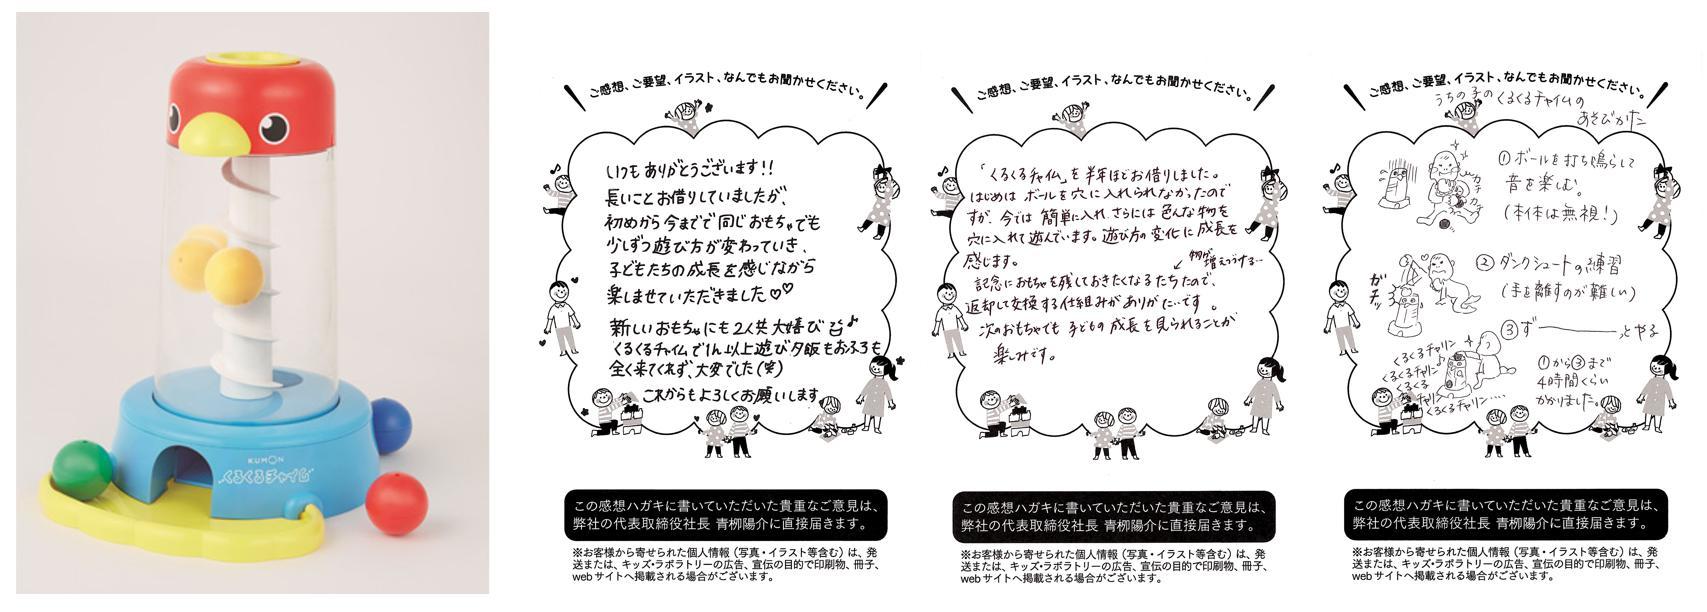 KUMON
くるくるチャイム
ご感想、ご要望、イラスト、なんでもお聞かせください。
いつもありがとうございます!!
長いことお借りしていましたが、
初めから今までで同じおもちゃでも
少しずつ遊び方が変わっていき、
子どもたちの成長を感じながら
楽しませていただきました♡♡
新しいおもちゃにも2人共大嬉び♪
くるくるチャイムで1h以上遊び夕飯もおふろも
全く来てくれず、大変でした(笑)
これからもよろしくお願いします
この感想ハガキに書いていただいた貴重なご意見は、
弊社の代表取締役社長 青栁陽介に直接届きます。
※お客様から寄せられた個人情報（写真・イラスト等含む）は、発
送または、キッズ・ラボラトリーの広告、宣伝の目的で印刷物、冊子、
webサイトへ掲載される場合がございます。
ご感想、ご要望、イラスト、なんでもお聞かせください。
「くるくるチャイム」を半年ほどお借りしました。
はじめはボールを穴に入れられなかったので
すが、今では簡単に入れ、さらには色んな物を
穴に入れて遊んでいます。遊び方の変化に成長を
感じます。
↙物が増えつづける…
記念におもちゃを残しておきたくなるたちなので、
返却して交換する仕組みがありがたいです。
次のおもちゃでも子どもの成長を見られることが
楽しみです。
この感想ハガキに書いていただいた貴重なご意見は、
弊社の代表取締役社長 青栁陽介に直接届きます。
※お客様から寄せられた個人情報（写真・イラスト等含む）は、発
送または、キッズ・ラボラトリーの広告、宣伝の目的で印刷物、冊子、
webサイトへ掲載される場合がございます。
ご感想、ご要望、イラスト、なんでもお聞かせください。
うちの子のくるくるチャイムの
あそびかた
①ボールを打ち鳴らして
音を楽しむ。
(本体は無視!)
カチ
カチ
②ダンクシュートの練習
(手を離すのが難しい)
ガチッ
③ずーーーーっとやる
くるくるチャリン♪
くるくるチャリン
くるくる
チャリン
くるくるチャリン….
①から③まで
4時間くらい
かかりました。
この感想ハガキに書いていただいた貴重なご意見は、
弊社の代表取締役社長 青栁陽介に直接届きます。
※お客様から寄せられた個人情報（写真・イラスト等含む）は、発
送または、キッズ・ラボラトリーの広告、宣伝の目的で印刷物、冊子、
webサイトへ掲載される場合がございます。